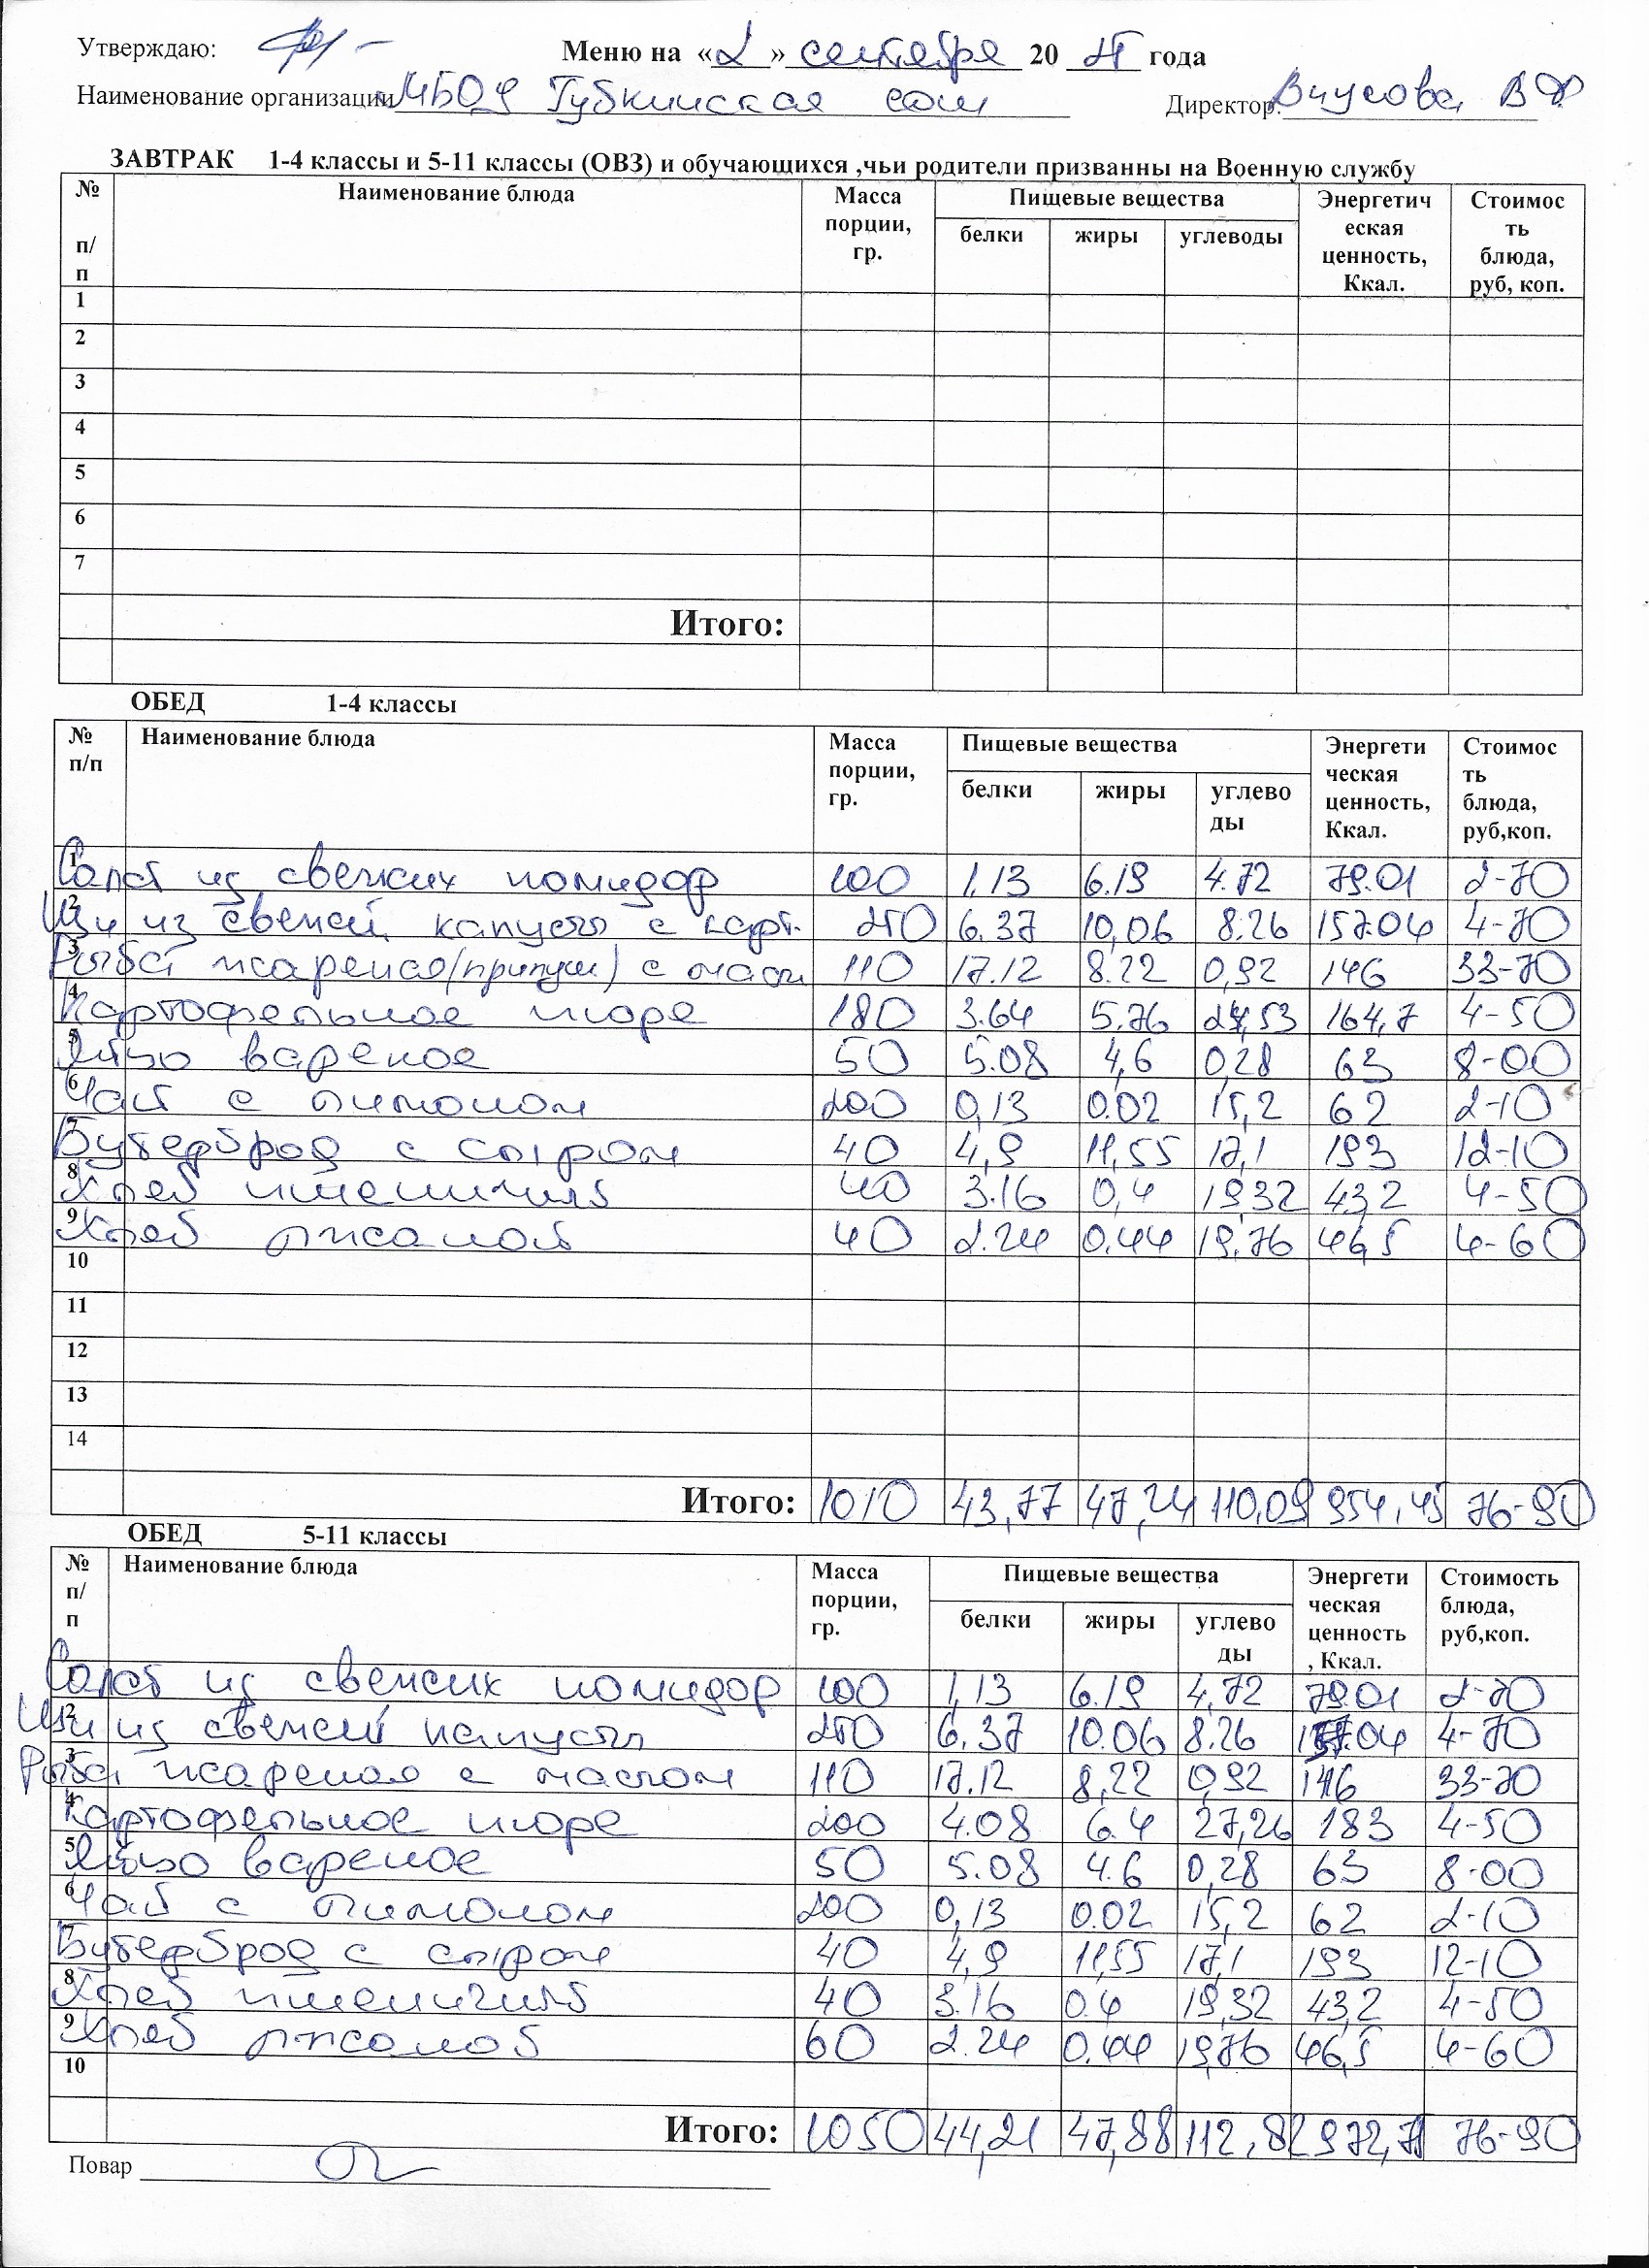 Утверждаю: Меню на «2» сентября 20 25 года
Наименование организации МБОУ Губкинская сош Директор: В Ф
ЗАВТРАК 1-4 классы и 5-11 классы (ОВЗ) и обучающихся ,чьи родители призванны на Военную службу
№ п/п Наименование блюда Масса порции, гр. Пищевые вещества Энергетическая ценность, Ккал. Стоимость блюда, руб, коп.
белки жиры углеводы
1
2
3
4
5
6
7
Итого:
ОБЕД 1-4 классы
№ п/п Наименование блюда Масса порции, гр. Пищевые вещества Энергетическая ценность, Ккал. Стоимость блюда, руб,коп.
белки жиры углеводы
1 Салат из свежих помидор 100 1,13 6.19 4.72 79.01 2-70
2 Щи из свежей капусты с карт. 250 6.37 10,06 8.26 157.04 4-70
3 Рыба жареная (припущ) с масл 110 17.12 8.22 0,92 146 33-70
4 Картофельное пюре 180 3.64 5.76 24,53 164,7 4-50
5 Яйцо вареное 50 5.08 4,6 0,28 63 8-00
6 Чай с лимоном 200 0,13 0.02 15,2 62 2-10
7 Бутерброд с сыром 40 4,9 11,55 17,1 193 12-10
8 Хлеб пшеничный 40 3.16 0,4 19,32 43,2 4-50
9 Хлеб ржаной 40 2.24 0.44 19,76 46,5 4-60
10
11
12
13
14
Итого: 1010 43,77 47,24 110,09 954,45 76-90
ОБЕД 5-11 классы
№ п/п Наименование блюда Масса порции, гр. Пищевые вещества Энергетическая ценность, Ккал. Стоимость блюда, руб,коп.
белки жиры углеводы
Салат из свежих помидор 100 1,13 6.19 4,72 79.01 2-70
2 Щи из свежей капусты 250 6,37 10.06 8.26 157.04 4-70
3 Рыба жареная с маслом 110 17.12 8,22 0,92 146 33-70
4 Картофельное пюре 200 4.08 6.4 27,26 183 4-50
5 Яйцо вареное 50 5.08 4.6 0,28 63 8-00
6 Чай с лимоном 200 0,13 0.02 15,2 62 2-10
7 Бутерброд с сыром 40 4,9 11,55 17,1 193 12-10
8 Хлеб пшеничный 40 3.16 0.4 19,32 43,2 4-50
9 Хлеб ржаной 60 2.24 0.44 19,76 46,5 4-60
10
Итого: 1050 44,21 47,88 112,82 972,71 76-90
Повар